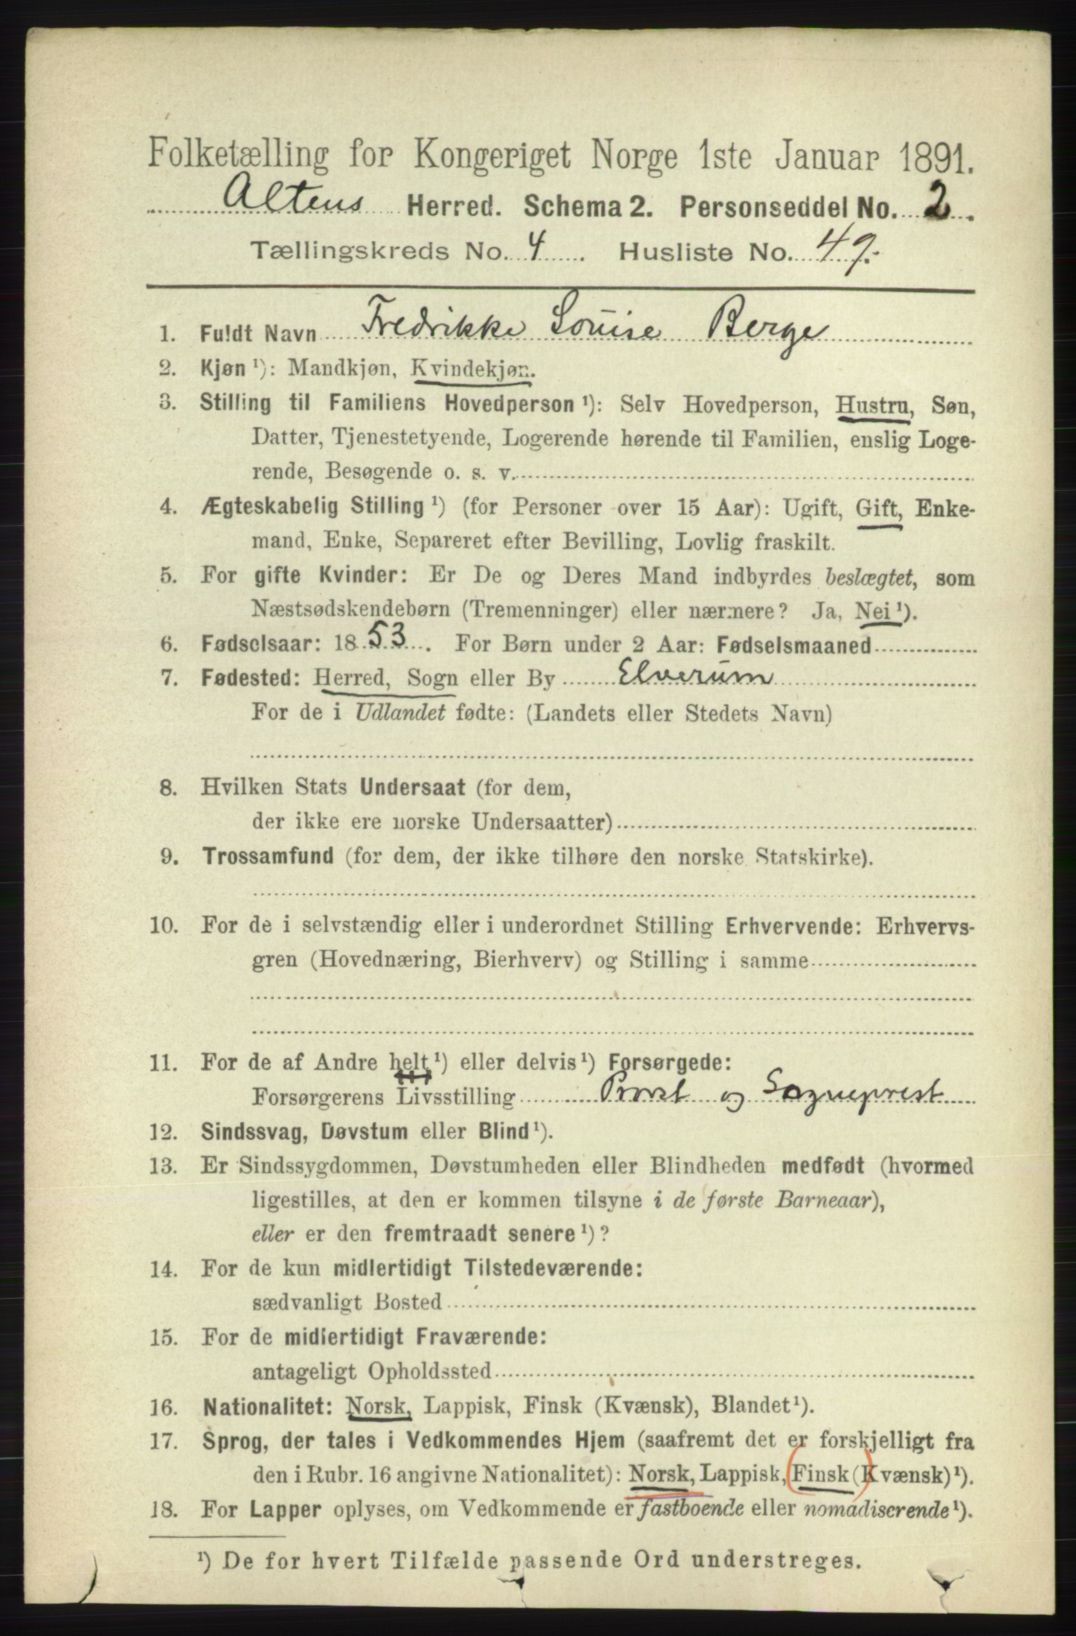 Folketælling for Kongeriget Norge 1ste Januar 1891.
Altens Herred. Schema 2. Personseddel No. 2.
Tællingskreds No. 4. Husliste No. 49.
1. Fuldt Navn Fredrikke Louise Berge
2. Kjøn ¹): Mandkjøn, Kvindekjøn.
3. Stilling til Familiens Hovedperson ¹): Selv Hovedperson, Hustru, Søn,
Datter, Tjenestetyende, Logerende hørende til Familien, enslig Loge-
rende, Besøgende o. s. v.
4. Ægteskabelig Stilling ¹) (for Personer over 15 Aar): Ugift, Gift, Enke-
mand, Enke, Separeret efter Bevilling, Lovlig fraskilt.
5. For gifte Kvinder: Er De og Deres Mand indbyrdes beslægtet, som
Næstsødskendebørn (Tremenninger) eller nærmere? Ja, Nei ¹).
6. Fødselsaar: 1853. For Børn under 2 Aar: Fødselsmaaned
7. Fødested: Herred, Sogn eller By Elverum
For de i Udlandet fødte: (Landets eller Stedets Navn)
8. Hvilken Stats Undersaat (for dem,
der ikke ere norske Undersaatter)
9. Trossamfund (for dem, der ikke tilhøre den norske Statskirke).
10. For de i selvstændig eller i underordnet Stilling Erhvervende: Erhvervs-
gren (Hovednæring, Bierhverv) og Stilling i samme
11. For de af Andre helt ¹) eller delvis ¹) Forsørgede:
Forsørgerens Livsstilling Provst og Sogneprest
12. Sindssvag, Døvstum eller Blind ¹).
13. Er Sindssygdommen, Døvstumheden eller Blindheden medfødt (hvormed
ligestilles, at den er kommen tilsyne i de første Barneaar),
eller er den fremtraadt senere ¹)?
14. For de kun midlertidigt Tilstedeværende:
sædvanligt Bosted
15. For de midlertidigt Fraværende:
antageligt Opholdssted
16. Nationalitet: Norsk, Lappisk, Finsk (Kvænsk), Blandet ¹).
17. Sprog, der tales i Vedkommendes Hjem (saafremt det er forskjelligt fra
den i Rubr. 16 angivne Nationalitet): Norsk, Lappisk, Finsk (Kvænsk) ¹).
18. For Lapper oplyses, om Vedkommende er fastboende eller nomadiserende ¹).
¹) De for hvert Tilfælde passende Ord understreges.